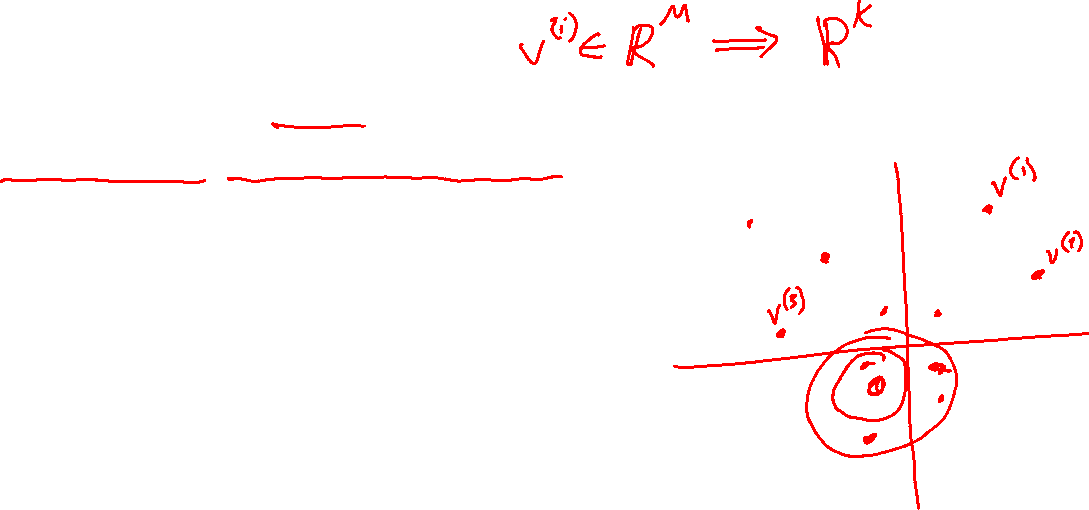 v⁽ⁱ⁾ ∈ ℝᴹ ⟹ ℝᴷ
v⁽¹⁾
v⁽²⁾
v⁽³⁾